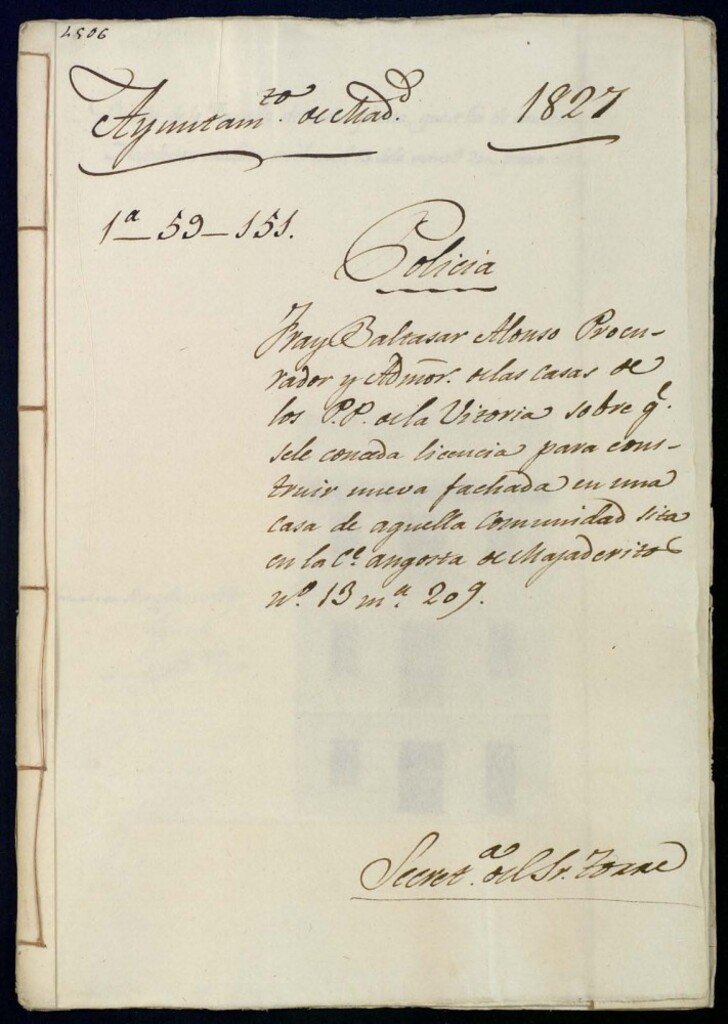 9057
Ayuntam.to de Mad.d 1827
1a_59_151.
Policia
Fray Baltasar Alonso Procu-
rador y Admor. de las casas de
los P.P. de la Vitoria sobre q.e
sele conceda licencia para cons-
truir nueva fachada en una
casa de aquella Comunidad sita
en la C.e angosta de Majaderitos
n.o 13 m.a 209.
Secret.a del Sr. Torre